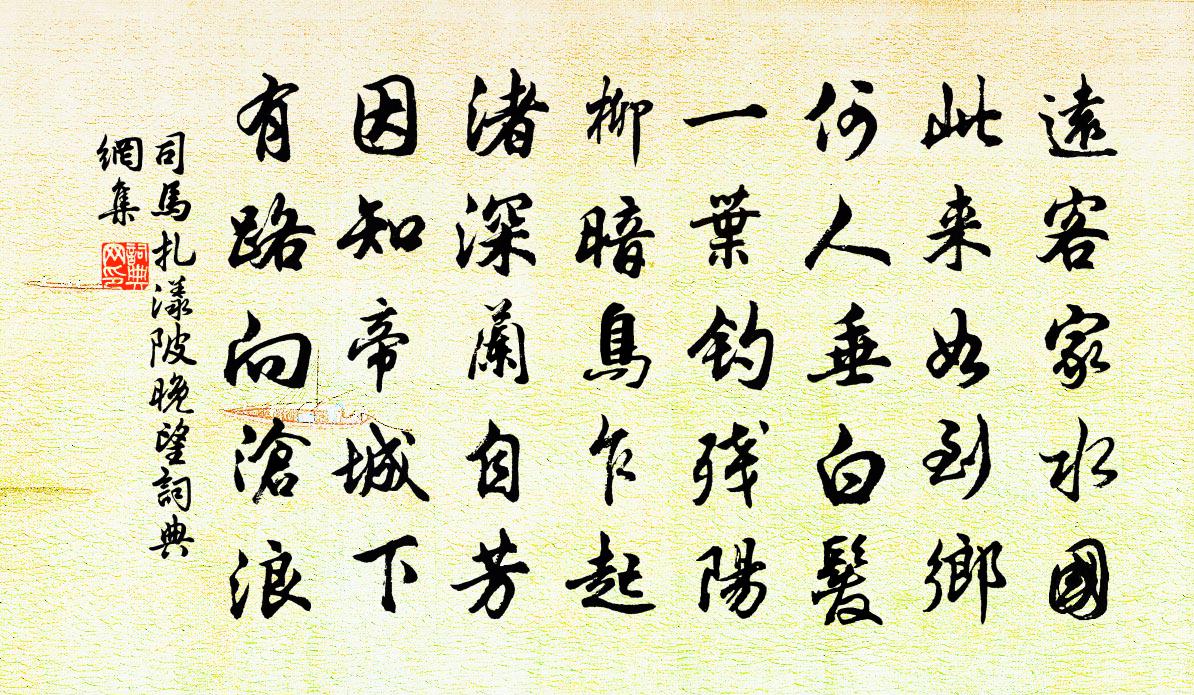 遠客家水國
此来如到鄉
何人垂白髮
一葉釣残陽
柳暗鳥乍起
渚深蘭自芳
因知帝城下
有路向滄浪
司馬扎漾陂晚望詞典
網集
詞典
网印